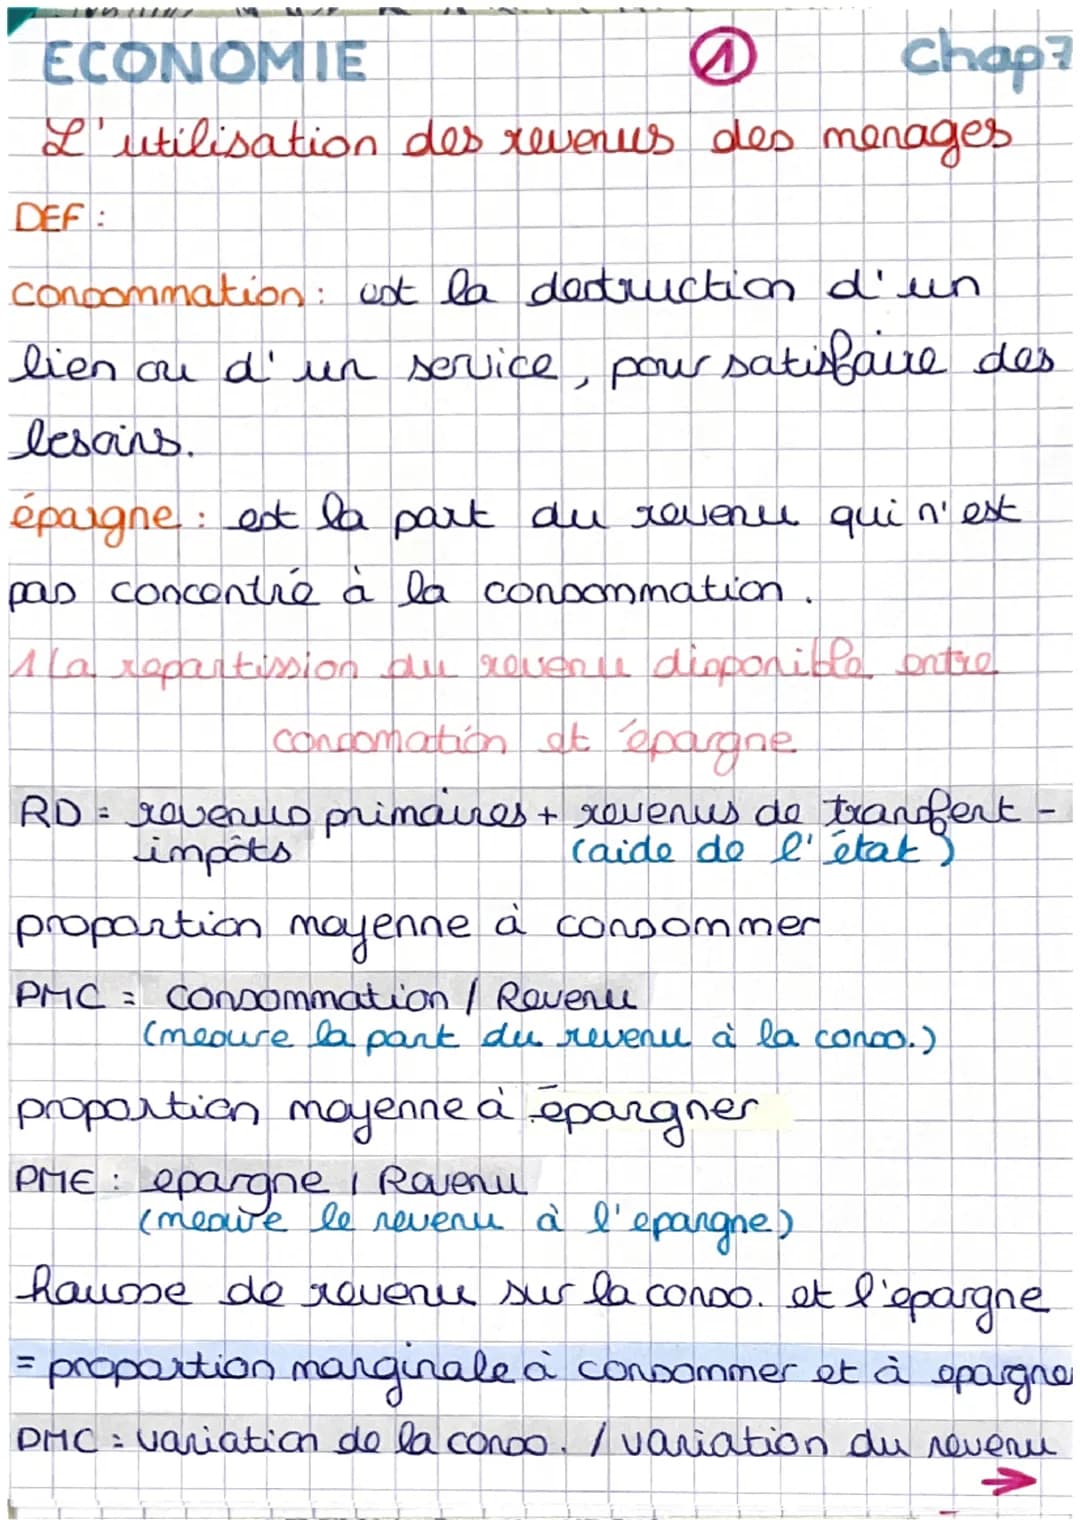 ECONOMIE 1 Chap7
L'utilisation des revenus des menages
DEF :
consommation : est la destruction d'un
bien ou d'un service, pour satisfaire des
besoins.
épargne : est la part du revenu qui n'est
pas concentré à la consommation.
1 La repartission du revenu disponible entre
consomation et épargne
RD = revenus primaires + revenus de transfert -
impôts (aide de l'état)
proportion moyenne à consommer
PMC = Consommation / Revenu
(mesure la part du revenu à la conso.)
proportion moyenne à épargner
PME : epargne / Revenu
(mesure le revenu à l'epargne)
hausse de revenu sur la conso. et l'epargne
= proportion marginale à consommer et à epargner
PMC : variation de la conso. / variation du revenu
→